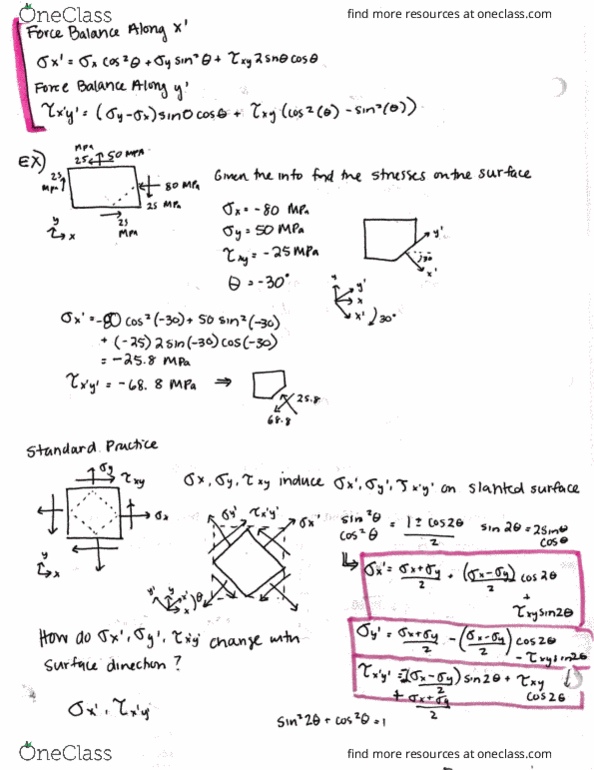 OneClass
find more resources at oneclass.com
Force Balance Along x'
σx' = σx cos²θ + σy sin²θ + τxy 2sinθcosθ
Force Balance Along y'
τx'y' = (σy-σx)sinθcosθ + τxy(cos²(θ) - sin²(θ))
EX)
MPa
25 50 MPA
25
MPa
80 MPa
25 MPa
25
MPa
y
x
Given the info find the stresses on the surface
σx = -80 MPa
σy = 50 MPa
τxy = -25 MPa
θ = -30°
y'
30
x'
y'
x
x' 30°
σx' = -80 cos²(-30) + 50 sin²(-30)
+ (-25) 2 sin(-30) cos(-30)
= -25.8 MPa
τx'y' = -68.8 MPa ⇒
25.8
68.8
Standard Practice
σy
τxy
σx
y
x
σx, σy, τxy induce σx', σy', τx'y' on slanted surface
σy' τx'y' σx'
y' y x' θ
x
sin²θ
cos²θ = 1 ± cos2θ / 2
sin 2θ = 2sinθ
cosθ
σx' = σx+σy / 2 + (σx-σy / 2) cos2θ
+
τxysin2θ
σy' = σx+σy / 2 - (σx-σy / 2) cos2θ
- τxysin2θ
τx'y' = -(σx-σy / 2) sin2θ + τxy
cos2θ
+ σx+σy / 2
How do σx', σy', τx'y' change with
surface direction?
σx', τx'y'
sin²2θ + cos²2θ = 1
OneClass
find more resources at oneclass.com